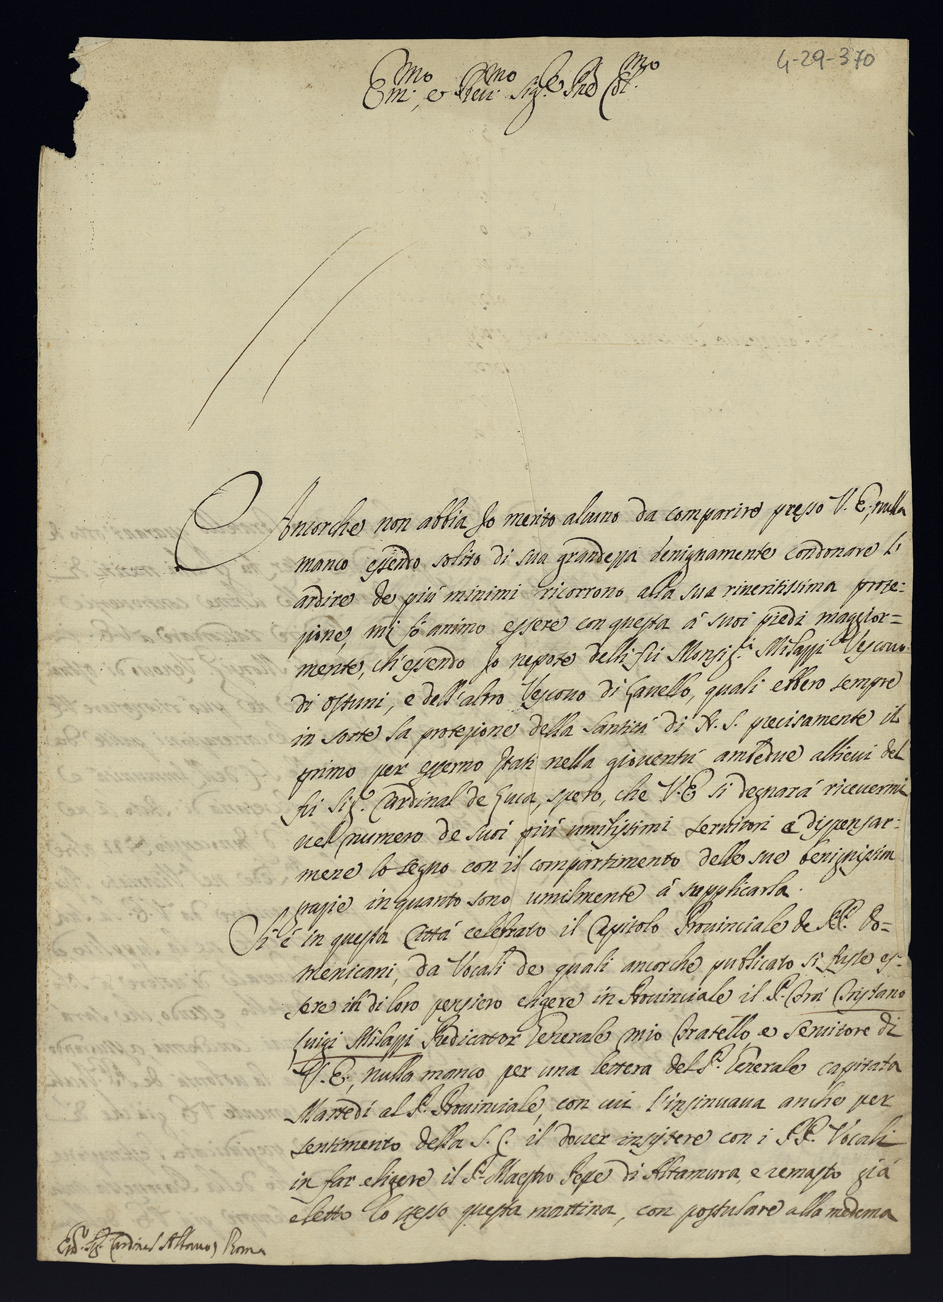 4-29-370
Em.mo, e Reu.mo Sig.re Prõ Col.mo
Ancorche non abbia Jo merito alcuno da comparire presso V. E., nulla
manco essendo solito di sua grandezza benignamente condonare l'
ardire de più minimi ricorrono alla sua riueritissima prote=
zione, mi fò animo essere con questa à suoi piedi maggior=
mente, ch'essendo Jo nepote delli fù Monsig.ri Milazzi Vescouo
di Ostuni, e dell'altro Vescouo di Gauello, quali ebbero sempre
in sorte la protezione della Santità di N. S. precisamente il
primo per esserno stati nella giouentù ambedue allieui del
fù Sig.r Cardinal de Luca, spero, che V. E. si degnarà riceuermi
nel numero de suoi più umilissimi seruitori e dispenzar=
mene lo segno con il compartimento delle sue benignissime
grazie in quanto sono umilmente à supplicarla.
Si è in questa Città celebrato il Capitolo Prouinciale de PP. Do=
menicani, da Vocali de quali ancorche publicato si fusse es=
sere di loro pensiero eligere in Prouinciale il P. Frà Cristano
Luigi Milazzi Predicator Generale mio Fratello e seruitore di
V. E. nulla manco per una lettera del P. Generale capitata
Martedì al P. Prouinciale, con cui l'insinuaua anche per
sentimento della S. C. il douer insistere con i PP. Vocali
in far eligere il P. Maestro Pepe di Altamura, e remasto già
eletto lo stesso questa mattina, con postulare alla medema
Em.o Sig. Cardinal Albano) Roma